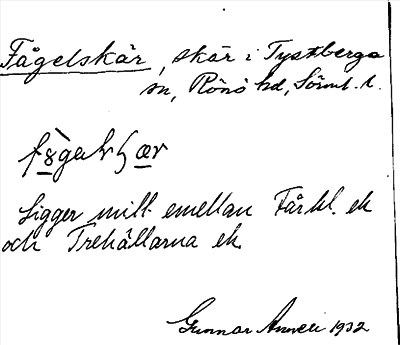 Fågelskär, skär i Tystberga
sn, Rönö hd, Sörml. l.
Ligger mitt emellan Fårhl. ek
och Trehällarna ek.
Gunnar 1932